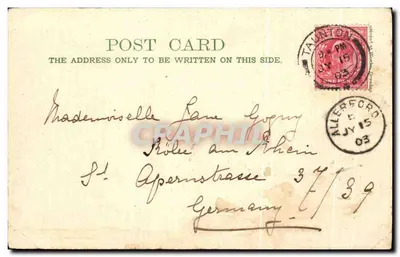 POST CARD
THE ADDRESS ONLY TO BE WRITTEN ON THIS SIDE.
TAUNTON
JY 15
03
ALLERFORD
JY 15
03
Mademoiselle Jane Gogny
Köln am Rhein
St. Apernstrasse 37/39
Germany
CPARAMA